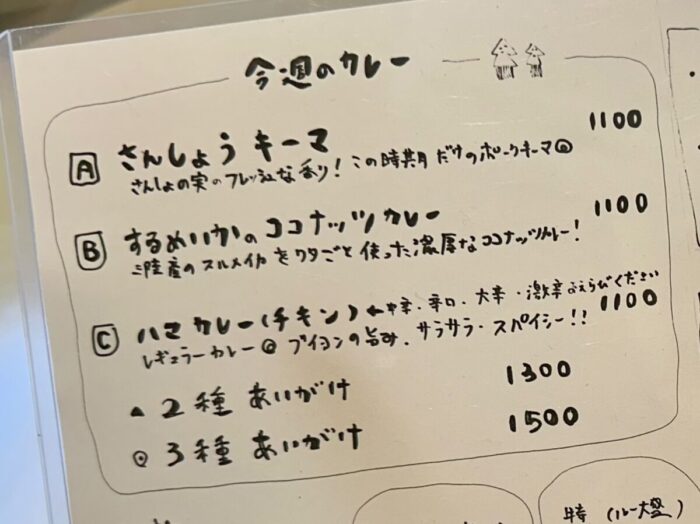 今週のカレー
A さんしょうキーマ 1100
さんしょの実のフレッシュな香り！この時期だけのポークキーマ
B するめいかのココナッツカレー 1100
三陸産のスルメイカをワタごと使った濃厚なココナッツカレー！
C ハマカレー(チキン) ←中辛・辛口・大辛・激辛よえらびください 1100
レギュラーカレー ブイヨンの旨み、サラサラ・スパイシー！！
▲ 2種あいがけ 1300
◎ 3種あいがけ 1500
(ルー大盛)